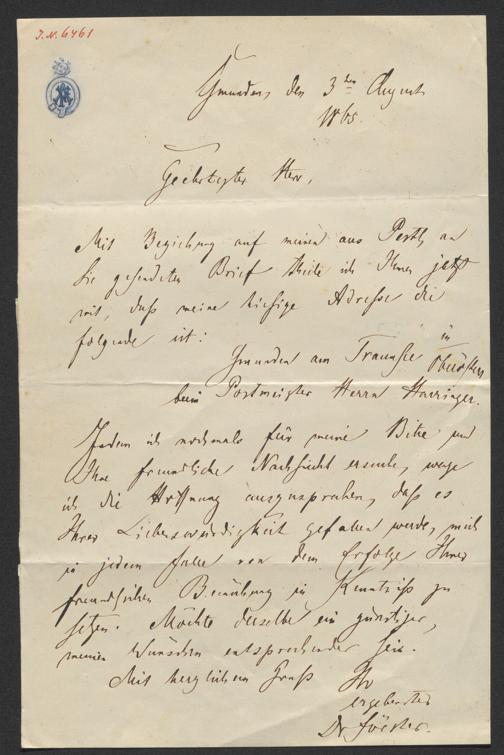 J.N. 6461
Gmunden, den 3ten August
1865.
Geehrtester Herr,
Mit Beziehung auf meinen aus Pesth an
Sie gesendeten Brief theile ich Ihnen jetzt
mit, daß meine hiesige Adresse die
folgende ist:
Gmunden am Traunsee in
Oberösterr
beim Postmeister Herrn
Indem ich nochmals für meine Bitte um
Ihre freundliche Nachsicht ersuche, wage
ich die Hoffnung auszusprechen, daß es
Ihrer Liebenswürdigkeit gefallen werde, mich
in jedem Falle von dem Erfolge Ihrer
freundlichen Bemühung in Kenntniß zu
setzen. Möchte derselbe ein günstiger,
meinen Wünschen entsprechender sein.
Mit herzlichem Gruß Ihr
ergebenster
Dr Förster.